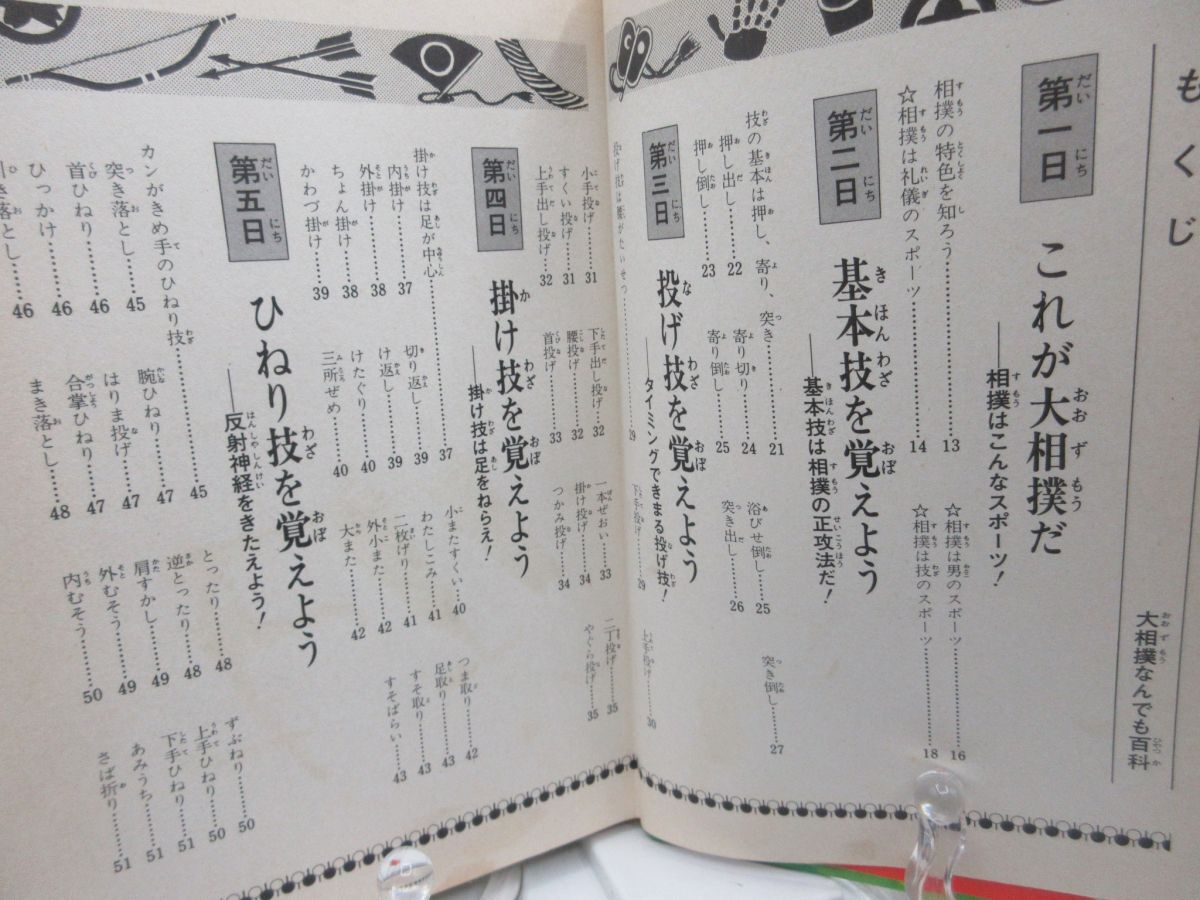 もくじ
大相撲なんでも百科
第一日 これが大相撲だ
――相撲はこんなスポーツ!
相撲の特色を知ろう……13
☆相撲は男のスポーツ……16
☆相撲は礼儀のスポーツ……14
☆相撲は技のスポーツ……18
第二日 基本技を覚えよう
――基本技は相撲の正攻法だ!
技の基本は押し、寄り、突き……21
浴びせ倒し……25
突き倒し……27
押し出し……22
寄り切り……24
突き出し……26
押し倒し……23
寄り倒し……25
第三日 投げ技を覚えよう
――タイミングできまる投げ技!
投げ技は腰がたいせつ……29
下手投げ……29
上手投げ……30
小手投げ……31
下手出し投げ……32
一本ぜおい……33
二丁投げ……35
すくい投げ……31
腰投げ……32
掛け投げ……34
やぐら投げ……35
上手出し投げ……32
首投げ……33
つかみ投げ……34
第四日 掛け技を覚えよう
――掛け技は足をねらえ!
掛け技は足が中心……37
小またすくい……40
つま取り……42
内掛け……37
切り返し……39
わたしこみ……41
足取り……43
外掛け……38
け返し……39
二枚げり……41
すそ取り……43
ちょん掛け……38
けたぐり……40
外小また……42
すそばらい……43
かわづ掛け……39
三所ぜめ……40
大また……42
第五日 ひねり技を覚えよう
――反射神経をきたえよう!
カンがきめ手のひねり技……45
とったり……48
ずぶねり……50
突き落とし……45
腕ひねり……47
逆とったり……48
上手ひねり……50
首ひねり……46
はりま投げ……47
肩すかし……49
下手ひねり……51
ひっかけ……46
合掌ひねり……47
外むそう……49
あみうち……51
引き落とし……46
まき落とし……48
内むそう……50
さば折り……51